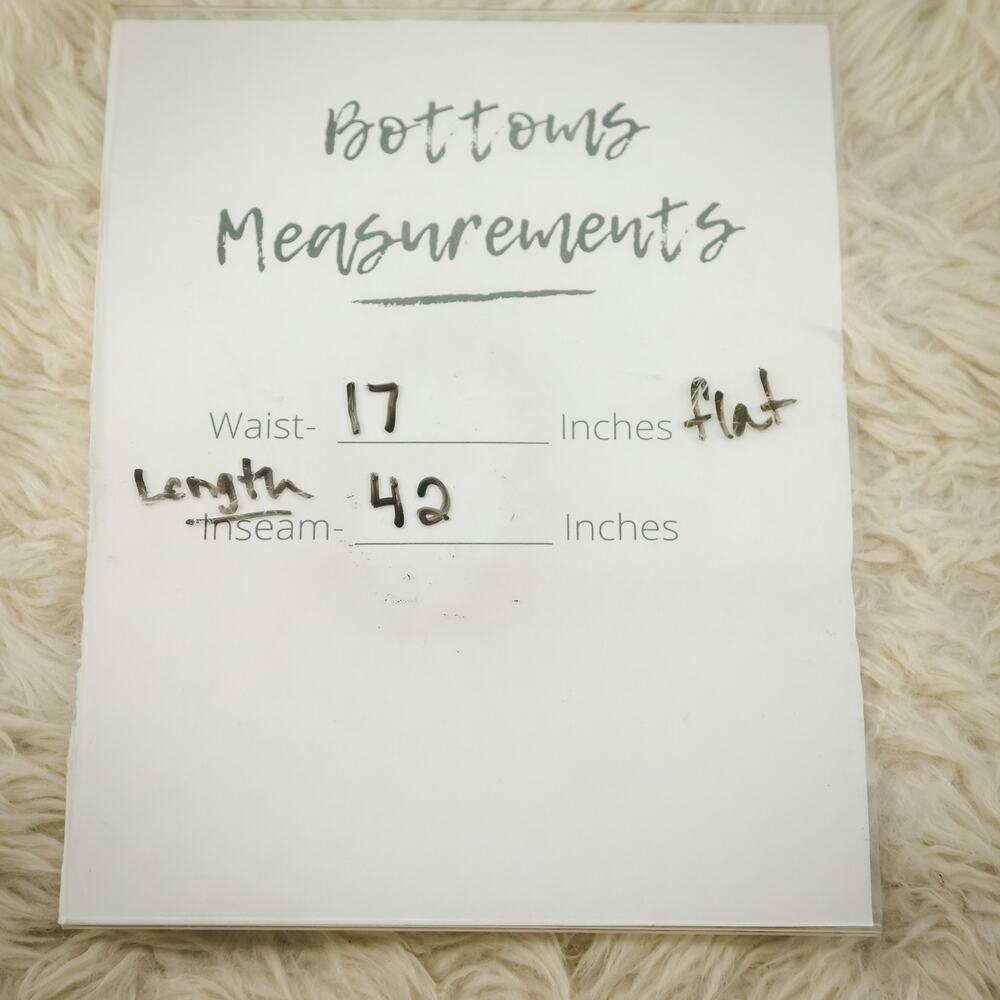 Bottoms
Measurements
Waist- 17 Inches flat
Length
Inseam- 42 Inches